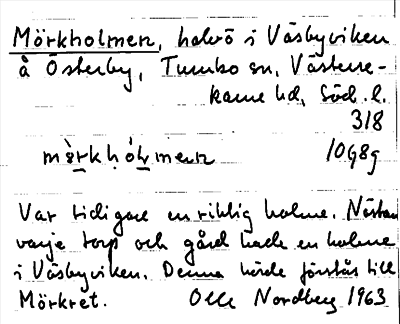 Mörkholmen, halvö i Väsbyviken
å Österby, Tumbo sn, Västere-
karne hd, Söd. l.
318
mèrkhólmenn 10G8g
Var tidigare en riktig holme. Nästan
varje torp och gård hade en holme
i Väsbyviken. Denna hörde förstås till
Mörkret. Olle Nordberg 1963